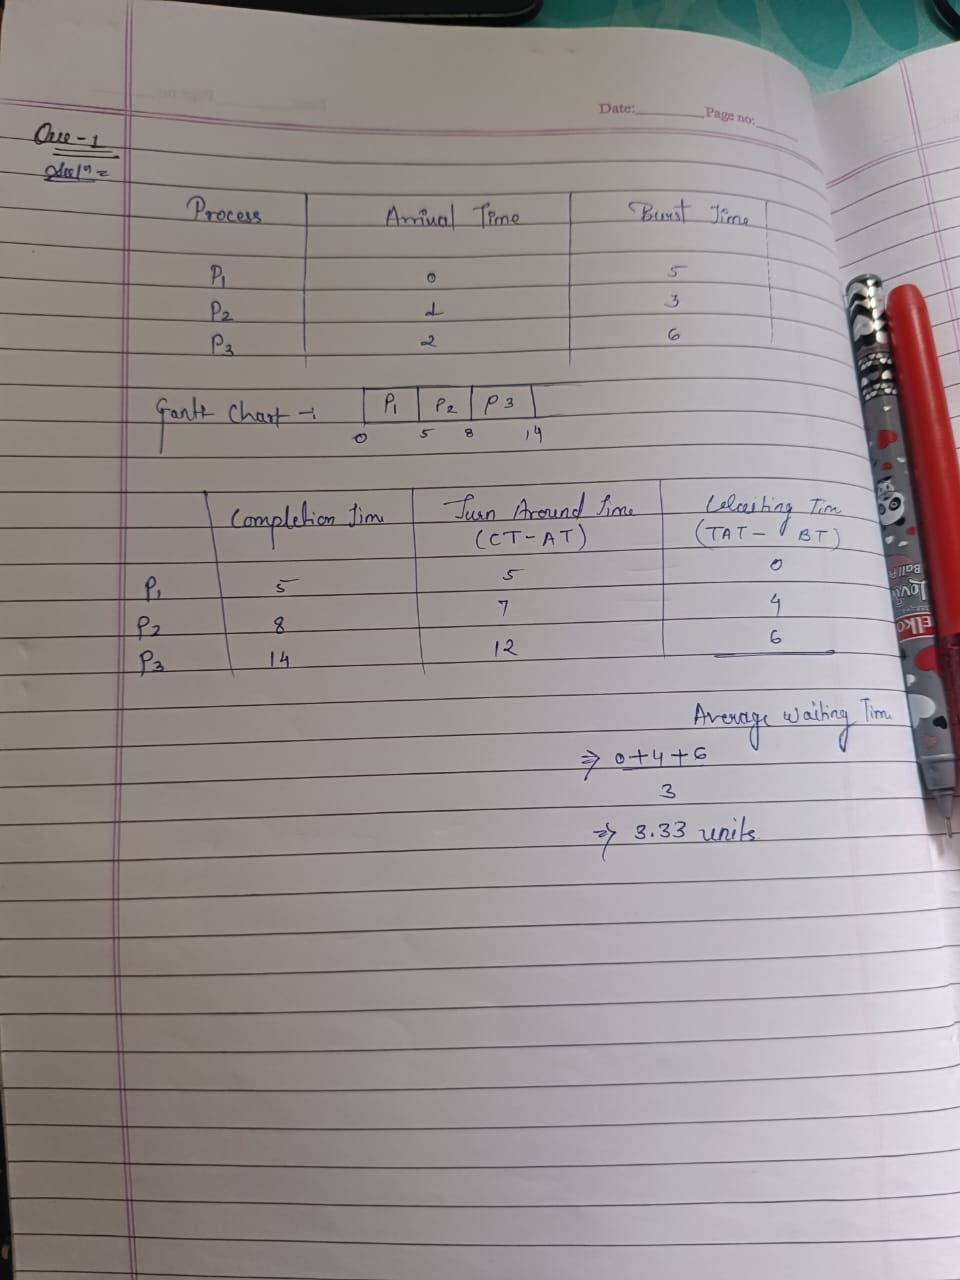 Date:________Page no:______
Que-1
Soln =
Process Arrival Time Burst Time
P1 0 5
P2 1 3
P3 2 6
Gantt Chart →
P1 P2 P3
0 5 8 14
Completion Time Turn Around Time Waiting Tim
(CT-AT) (TAT- BT)
P1 5 5 0
P2 8 7 4
P3 14 12 6
Average Waiting Tim
⇒ 0+4+6
3
⇒ 3.33 units
elko